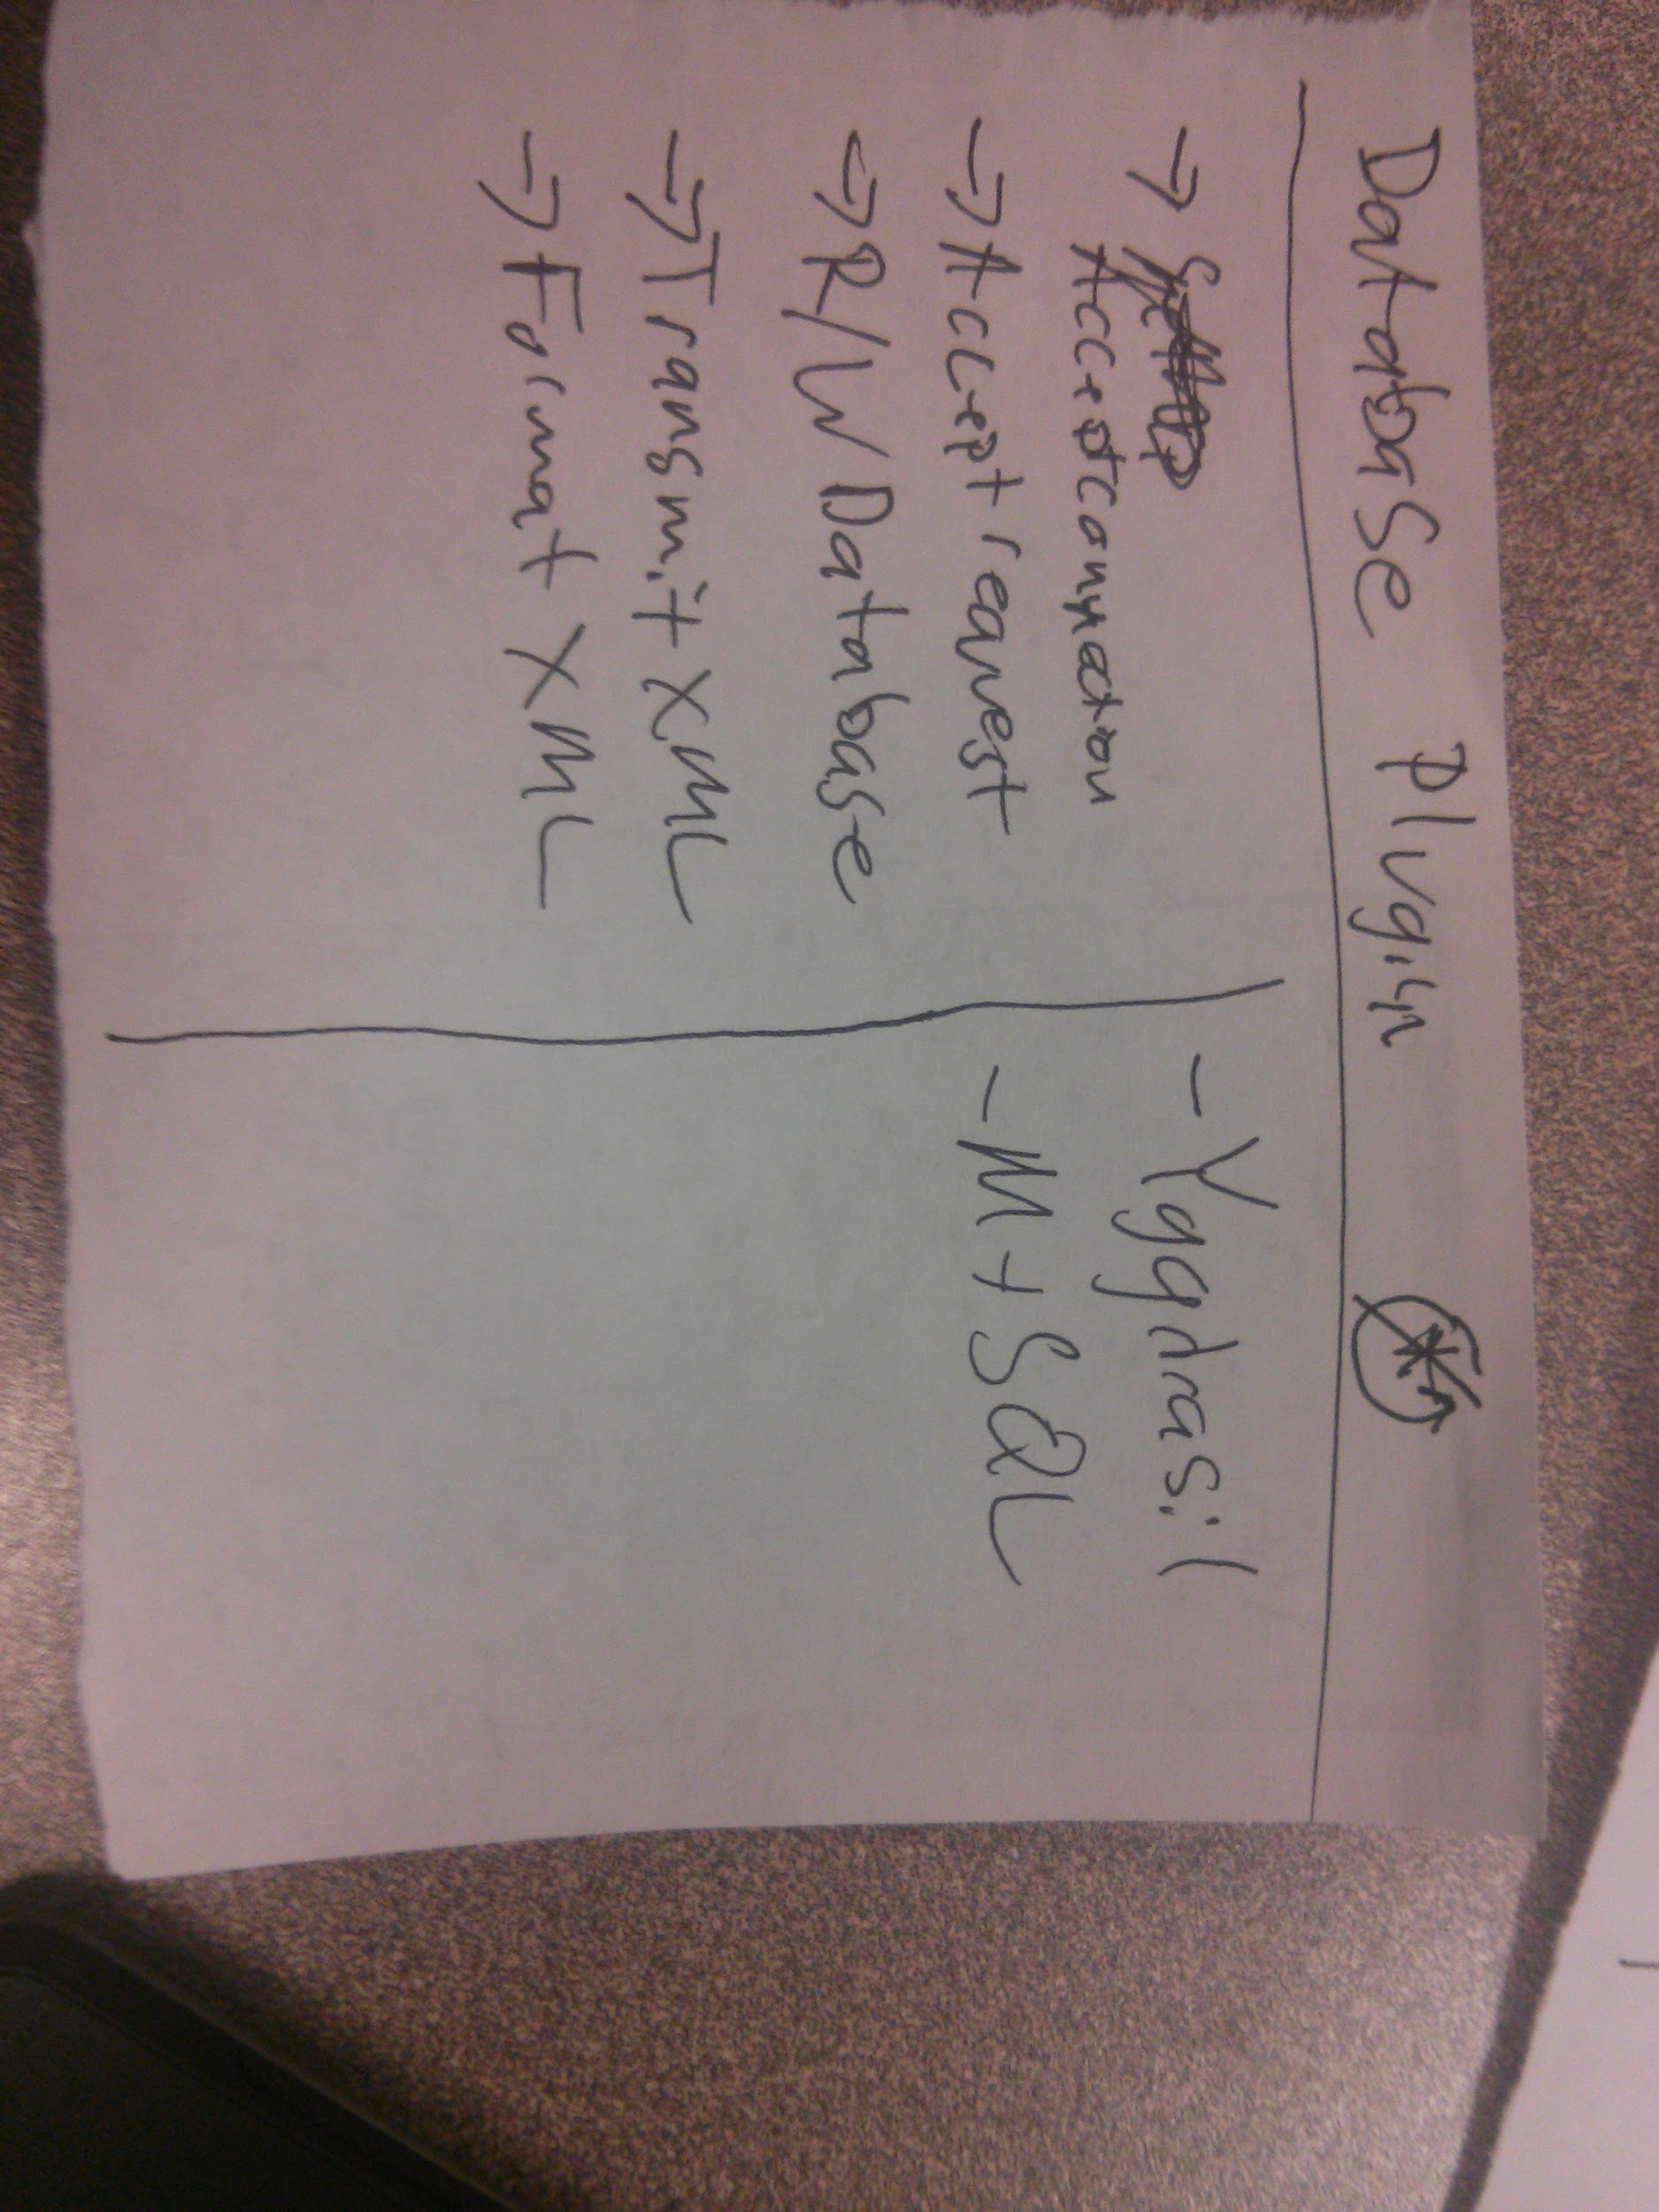 Database Plugin
→ Accept connection
→ Accept request
→ R/W Database
→ Transmit XML
→ Format XML
- Yggdrasil
- M + SQL